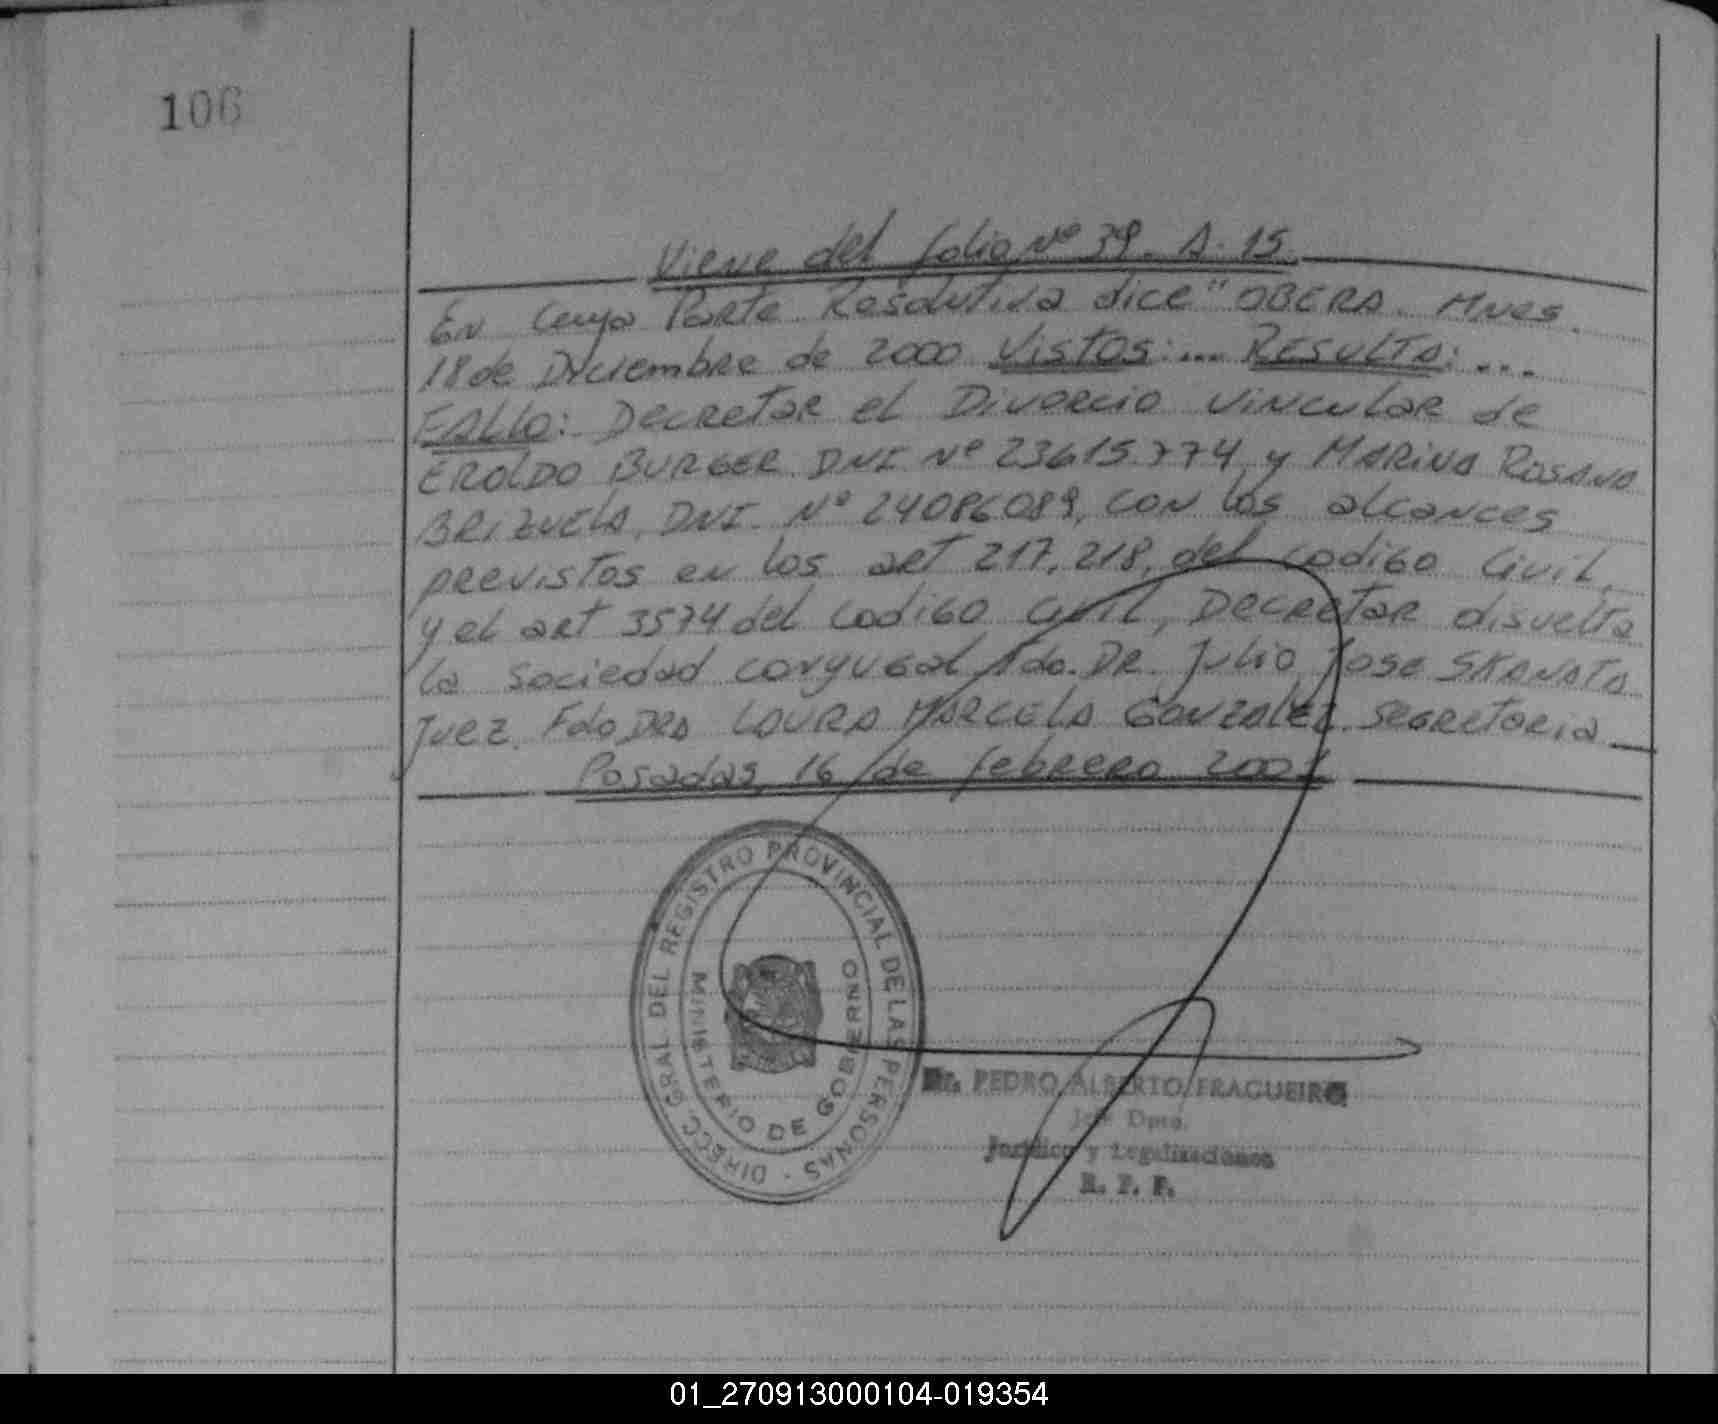 106
Viene del folio Nº 39. A. 15.
En cuya Parte Resolutiva dice" OBERA. Mnes.
18 de Diciembre de 2000 Vistos:... RESULTA:...
FALLO: Decretar el Divorcio vincular de
EROLDO BURGER DNI Nº 23615.774, y MARINA ROSANA
BRIZUELA, DNI. Nº 24086089, con los alcances
previstos en los art 217, 218, del codigo Civil,
y el art 3574 del codigo civil, Decretar disuelta
la sociedad conyugal Fdo. DR. Julio Jose SKANATA
Juez. Fdo DRA LAURA MARCELA GONZALEZ. Segretaria
Posadas, 16 de febrero 2001
DIRECC. GRAL DEL REGISTRO PROVINCIAL DE LAS PERSONAS -
MINISTERIO DE GOBIERNO
Dr. PEDRO ALBERTO FRAGUEIRO
Jefe Dpto.
Jurídico y Legalizaciones
R. P. P.
01_270913000104-019354